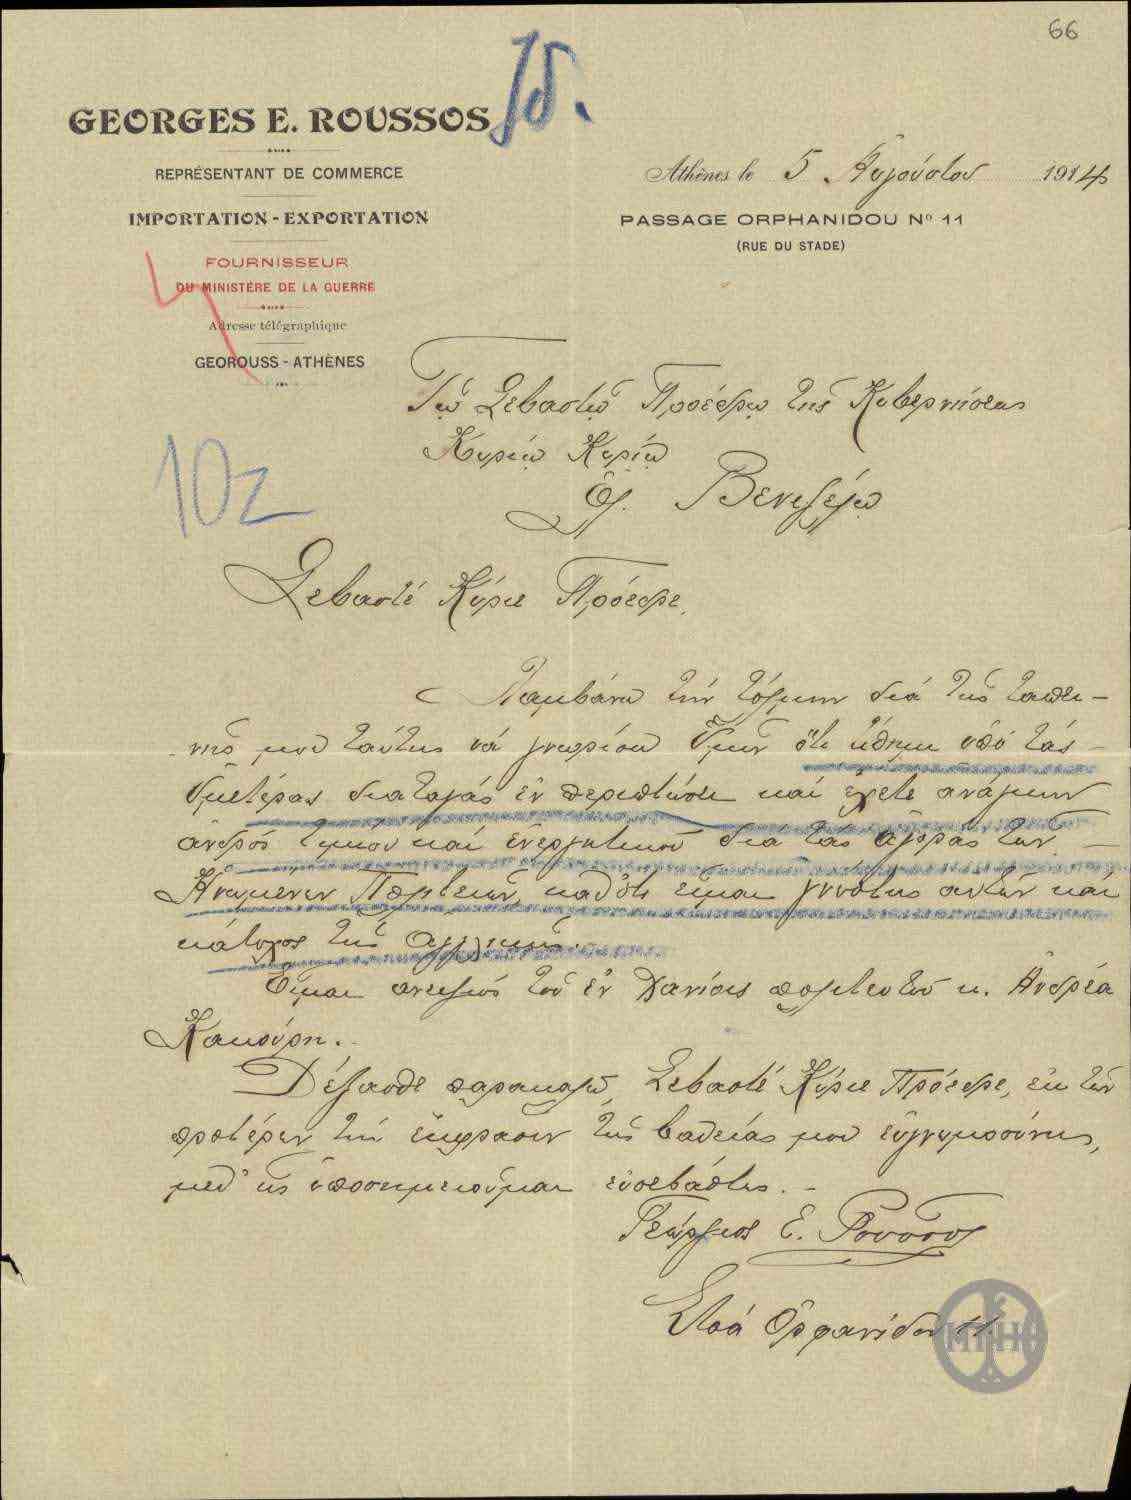 66
Ἰδ.
GEORGES E. ROUSSOS
REPRÉSENTANT DE COMMERCE
IMPORTATION - EXPORTATION
FOURNISSEUR
DU MINISTÈRE DE LA GUERRE
Adresse télégraphique
GEOROUSS - ATHÈNES
Athènes le 5 Αὐγούστου 1914
PASSAGE ORPHANIDOU Nº 11
(RUE DU STADE)
Τῷ Σεβαστῷ Προέδρῳ τῆς Κυβερνήσεως
Κυρίῳ Κυρίῳ
Ἐλ. Βενιζέλῳ
102
Σεβαστέ Κύριε Πρόεδρε,
Λαμβάνω τήν τόλμην διά τῆς ταπει-
νῆς μου ταύτης νά γνωρίσω Ὑμῖν ὅτι τίθημι ὑπό τάς
Ὑμετέρας διαταγάς ἐν περιπτώσει καί ἔχετε ἀνάγκην
ἀνδρός τιμίου καί ἐνεργητικοῦ διά τάς ἀγοράς τῶν
Ἡνωμένων Πολιτειῶν, καθότι εἶμαι γνώστης αὐτῶν καί
κάτοχος τῆς Ἀγγλικῆς.
Εἶμαι ἀνεψιός τοῦ ἐν Χανίοις πολιτευτοῦ κ. Ἀνδρέα
Κακούρη.
Δέξασθε παρακαλῶ, Σεβαστέ Κύριε Πρόεδρε, ἐκ τῶν
προτέρων τήν ἔκφρασιν τῆς βαθείας μου εὐγνωμοσύνης,
μεθ' ἧς ὑποσημειοῦμαι εὐσεβάστως.
Γεώργιος Ε. Ροῦσσος
Στοά Ὀρφανίδου 11